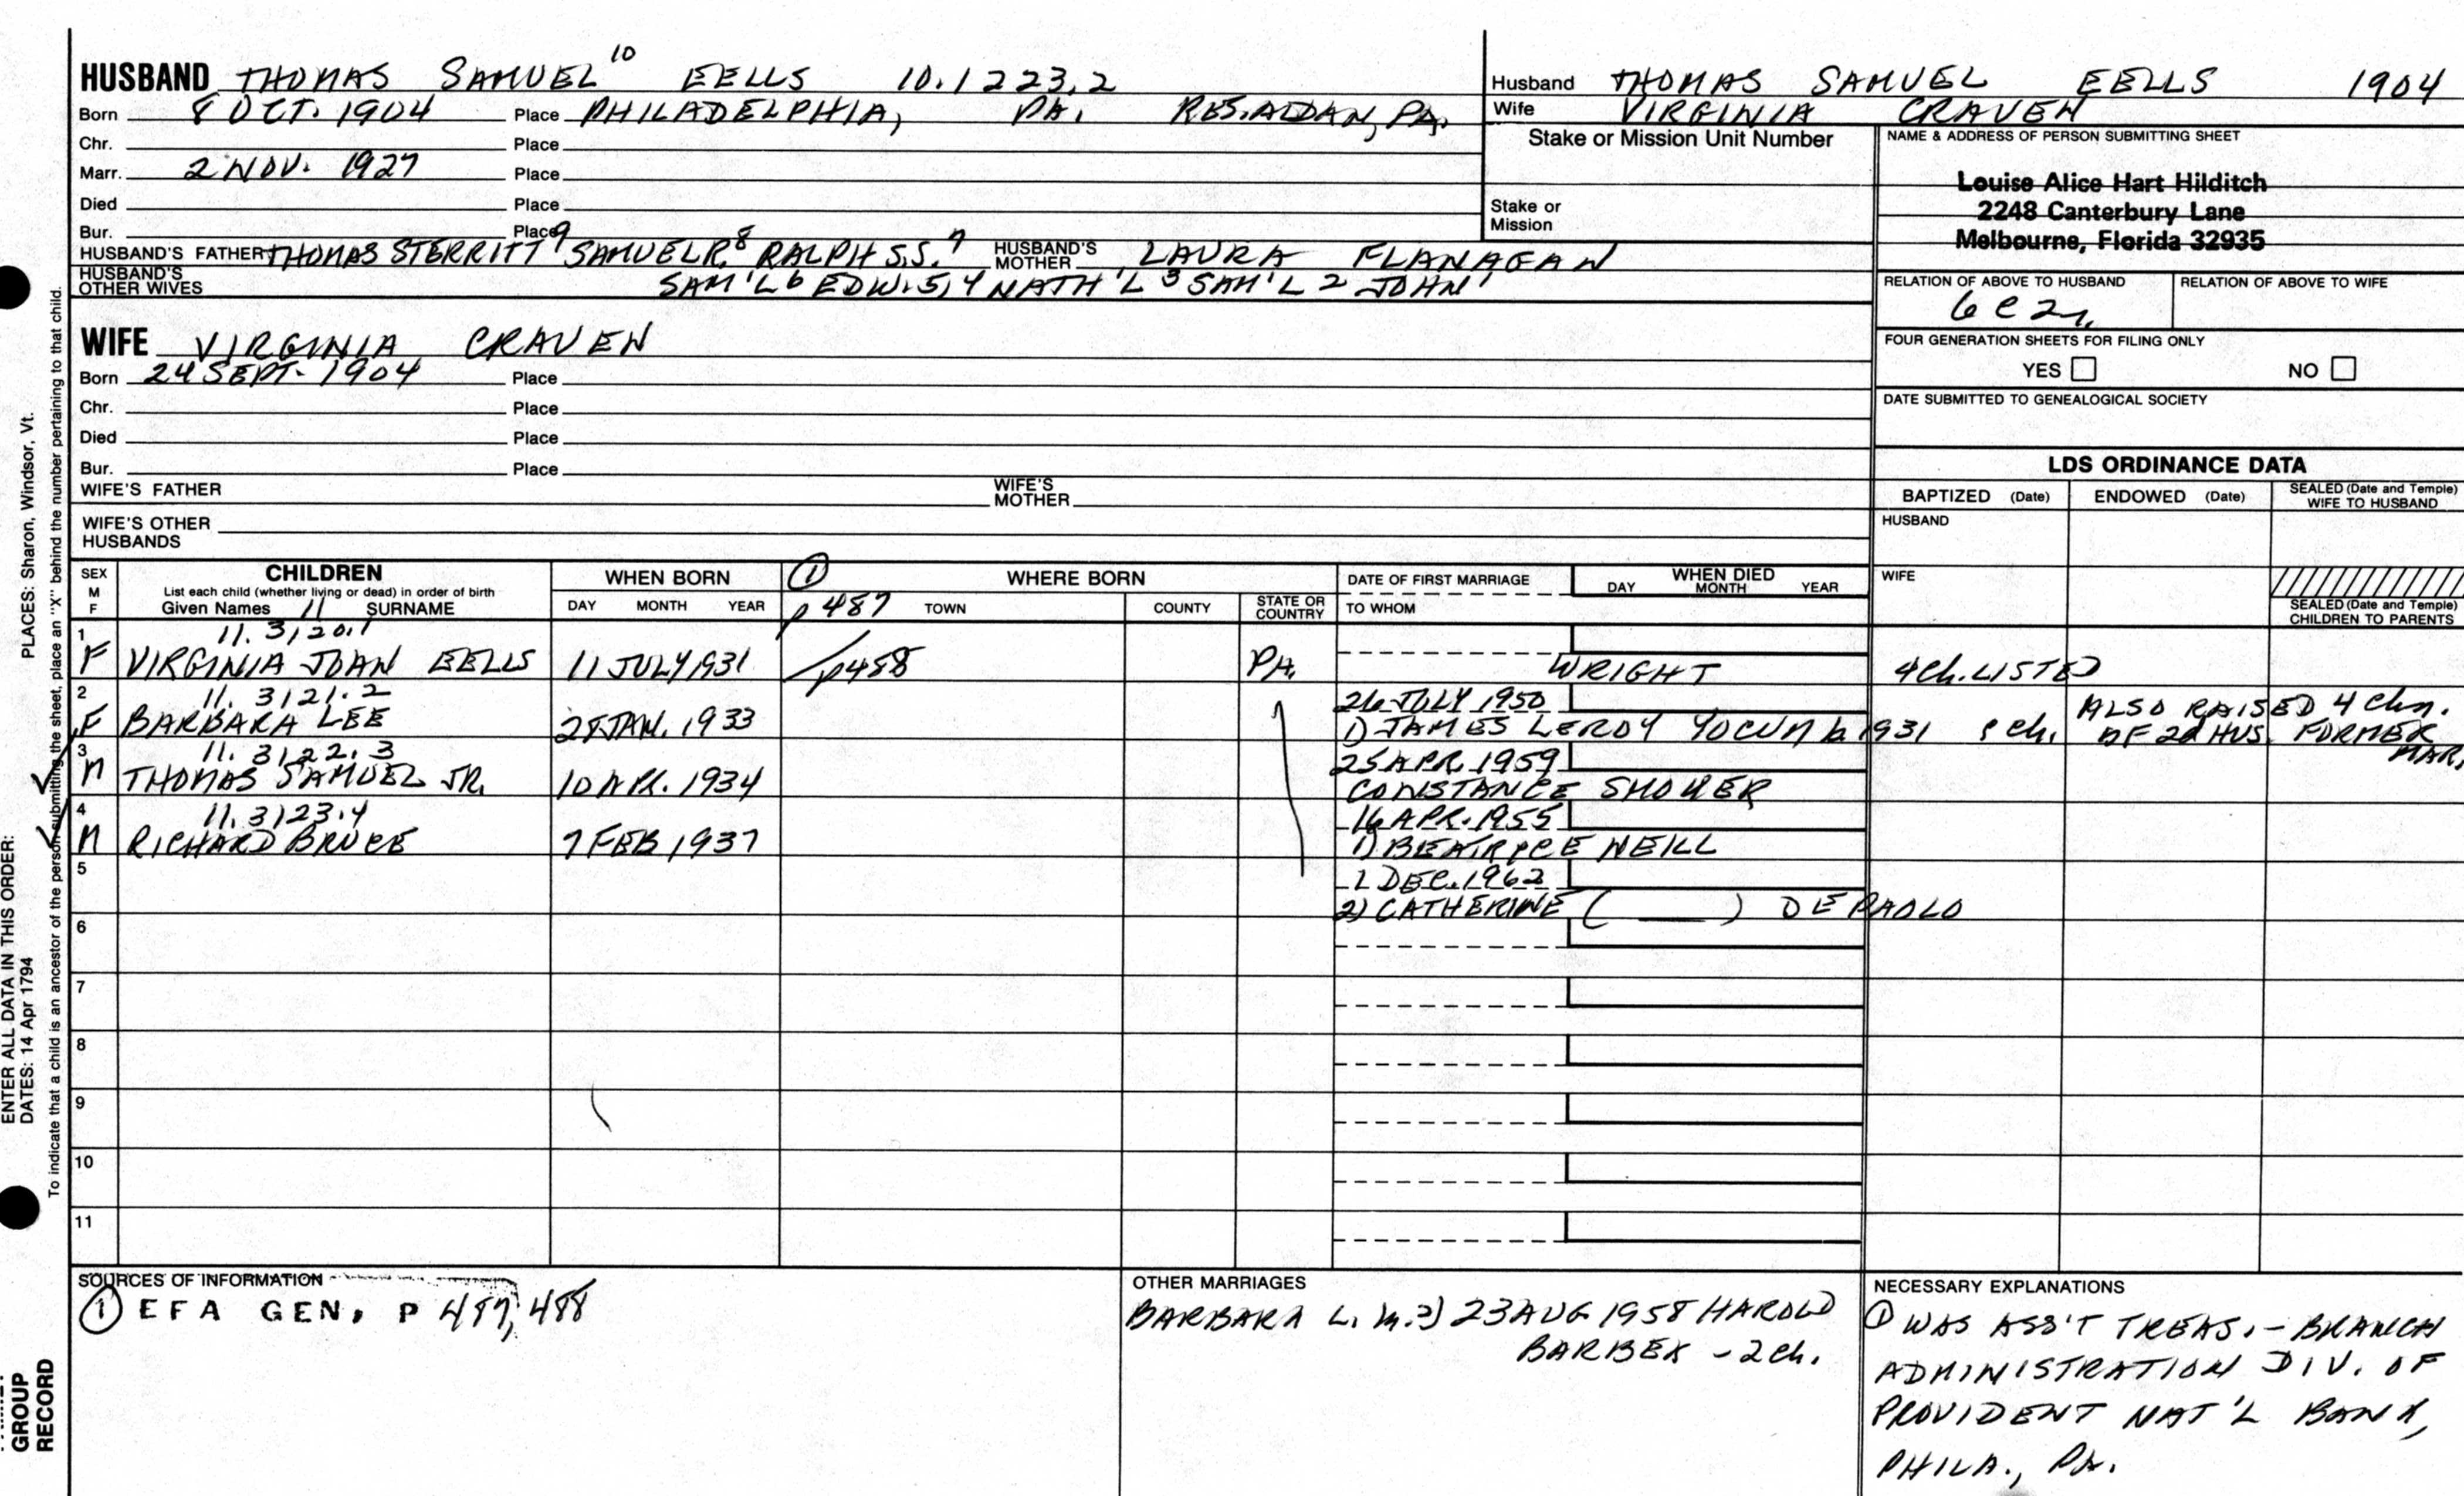 HUSBAND THOMAS SAMUEL 10 EELLS 10.1223.2
Born 8 OCT. 1904 Place PHILADELPHIA, PA. RES. ALDAN, PA.
Chr. Place
Marr. 2 NOV. 1927 Place
Died Place
Bur. Place
HUSBAND'S FATHER THOMAS STERRITT 9 SAMUEL R. 8 RALPH S.S. 7 HUSBAND'S MOTHER LAURA FLANAGAN
HUSBAND'S OTHER WIVES SAM'L 6 EDW. 5,4 NATH'L 3 SAM'L 2 JOHN 1
Husband THOMAS SAMUEL EELLS 1904
Wife VIRGINIA CRAVEN
Stake or Mission Unit Number
Stake or
Mission
NAME & ADDRESS OF PERSON SUBMITTING SHEET
Louise Alice Hart Hilditch
2248 Canterbury Lane
Melbourne, Florida 32935
RELATION OF ABOVE TO HUSBAND RELATION OF ABOVE TO WIFE
6 c 2r.
FOUR GENERATION SHEETS FOR FILING ONLY
YES NO
DATE SUBMITTED TO GENEALOGICAL SOCIETY
WIFE VIRGINIA CRAVEN
Born 24 SEPT. 1904 Place
Chr. Place
Died Place
Bur. Place
WIFE'S FATHER WIFE'S MOTHER
WIFE'S OTHER
HUSBANDS
LDS ORDINANCE DATA
BAPTIZED (Date) ENDOWED (Date) SEALED (Date and Temple) WIFE TO HUSBAND
HUSBAND
WIFE
SEALED (Date and Temple) CHILDREN TO PARENTS
SEX M F
CHILDREN
List each child (whether living or dead) in order of birth
Given Names 11 SURNAME
WHEN BORN
DAY MONTH YEAR
① WHERE BORN
p 487 TOWN COUNTY STATE OR COUNTRY
DATE OF FIRST MARRIAGE
TO WHOM
WHEN DIED
DAY MONTH YEAR
1 11.3120.1
F VIRGINIA JOAN EELLS 11 JULY 1931 p458 PA. WRIGHT 4 Ch. LISTED
2 11.3121.2 26 JULY 1950 ALSO RAISED 4 Chn.
F BARBARA LEE 28 JAN. 1933 1) JAMES LEROY YOCUM b 1931 ch. OF 2d HUS. FORMER MAR.
3 11.3122.3 25 APR. 1959
M THOMAS SAMUEL JR. 10 APR. 1934 CONSTANCE SHOWER
4 11.3123.4 16 APR. 1955
M RICHARD BRUCE 7 FEB 1937 1) BEATRICE NEILL
5 1 DEC. 1962
2) CATHERINE ( ) DEPAOLO
6
7
8
9
10
11
SOURCES OF INFORMATION
① EFA GEN, P 487, 488
OTHER MARRIAGES
BARBARA L. m. 2) 23 AUG 1958 HAROLD
BARBEK - 2 ch.
NECESSARY EXPLANATIONS
① WAS ASS'T TREAS. - BRANCH
ADMINISTRATION DIV. OF
PROVIDENT NAT'L BANK,
PHILA., PA.
PLACES: Sharon, Windsor, Vt.
To indicate that a child is an ancestor of the person submitting the sheet, place an "X" behind the number pertaining to that child.
ENTER ALL DATA IN THIS ORDER:
DATES: 14 Apr 1794
GROUP
RECORD